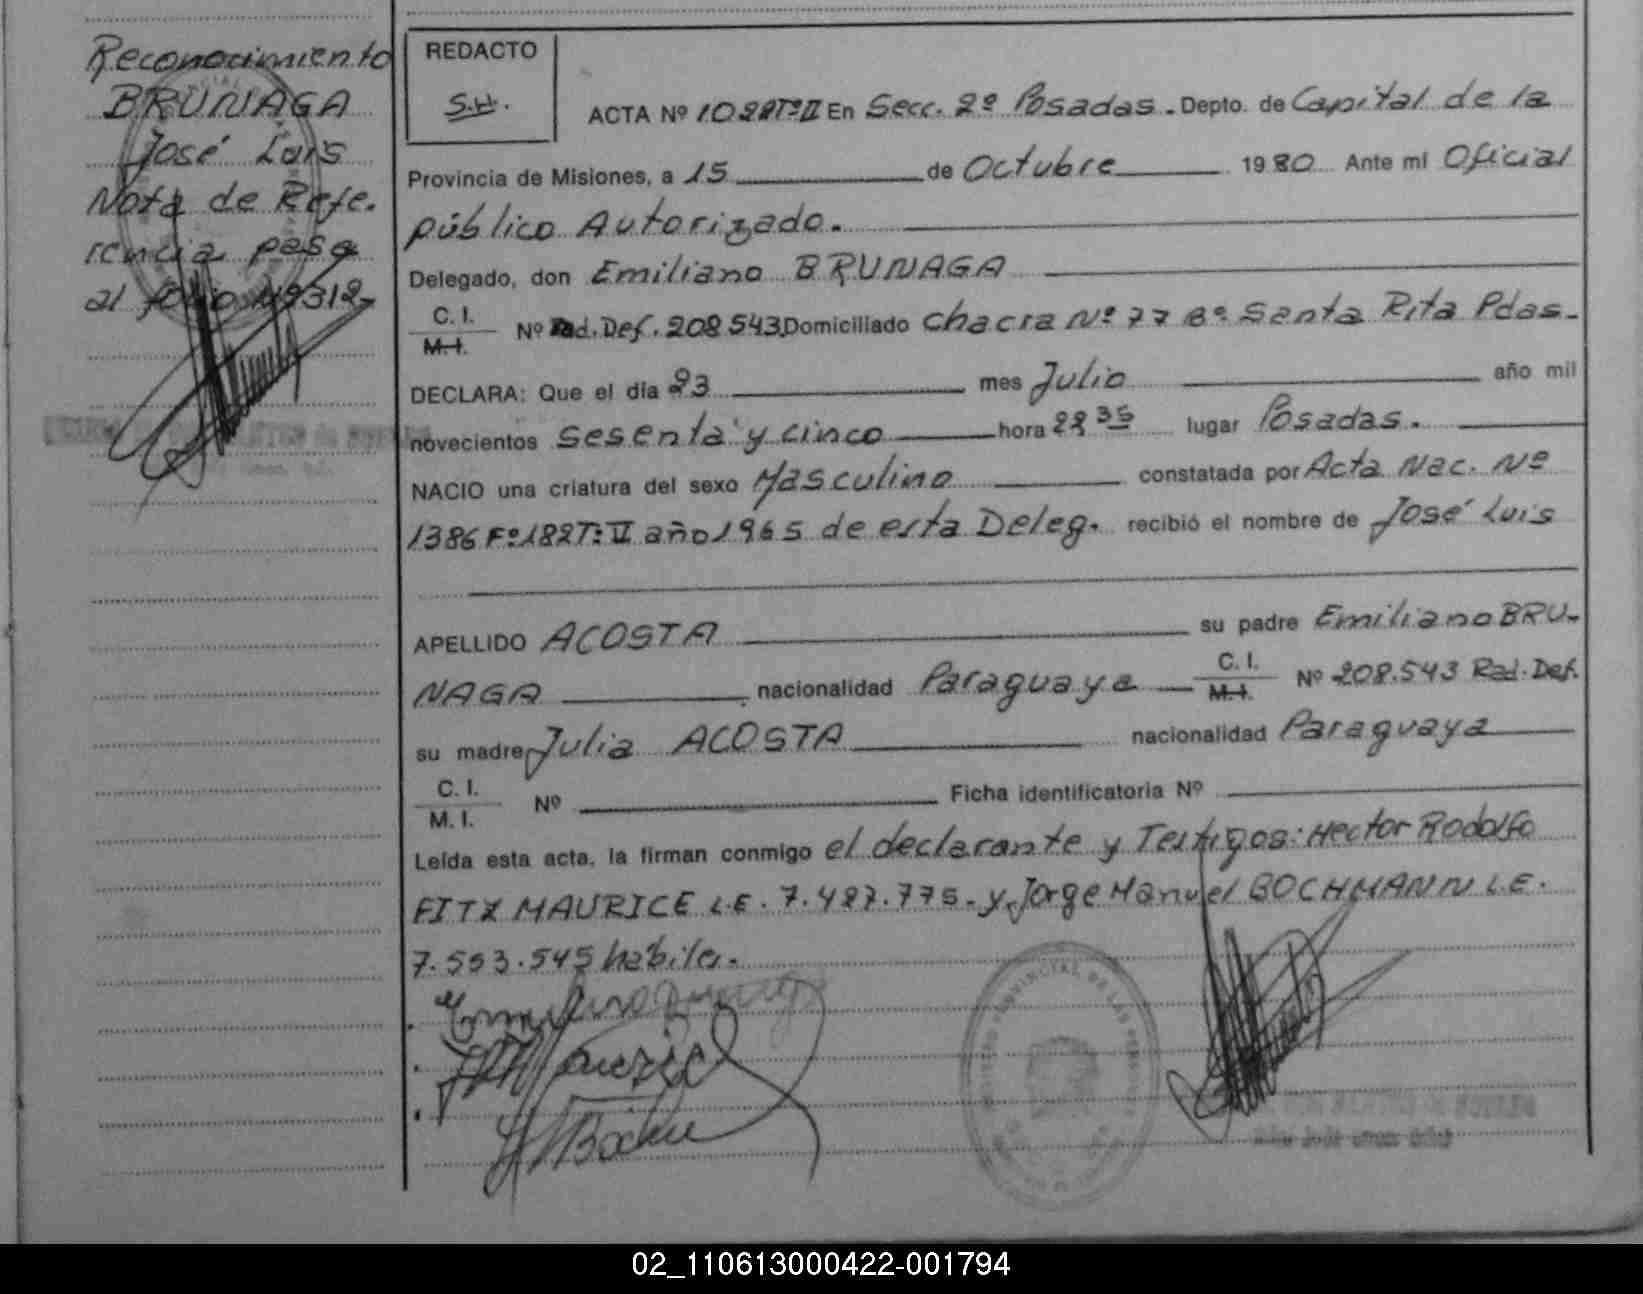 Reconocimiento
BRUNAGA
José Luis
Nota de Refe.
rencia pasa
al folio Nº312-
REDACTO
S.H.
ACTA Nº 1022Tº II En Secc. 2º Posadas. Depto. de Capital de la
Provincia de Misiones, a 15 de Octubre 1980 Ante mi Oficial
público Autorizado.
Delegado, don Emiliano BRUNAGA
C. I.
M. I.
Nº Rad. Def. 208543 Domiciliado Chacra Nº 77 Bº Santa Rita Pdas.
DECLARA: Que el día 23 mes Julio año mil
novecientos sesenta y cinco hora 22 35 lugar Posadas.
NACIO una criatura del sexo Masculino constatada por Acta Nac. Nº
1386 Fº 182 T: VI año 1965 de esta Deleg. recibió el nombre de José Luis
APELLIDO ACOSTA su padre Emiliano BRU-
NAGA nacionalidad Paraguaya C. I.
M. I.
Nº 208.543 Rad. Def.
su madre Julia ACOSTA nacionalidad Paraguaya
C. I.
M. I.
Nº Ficha identificatoria Nº
Leída esta acta, la firman conmigo el declarante y Testigos: Hector Rodolfo
FITZ MAURICE L.E. 7.487.775. y Jorge Manuel BOCHMANN L.E.
7.553.545 habiles.
02_110613000422-001794